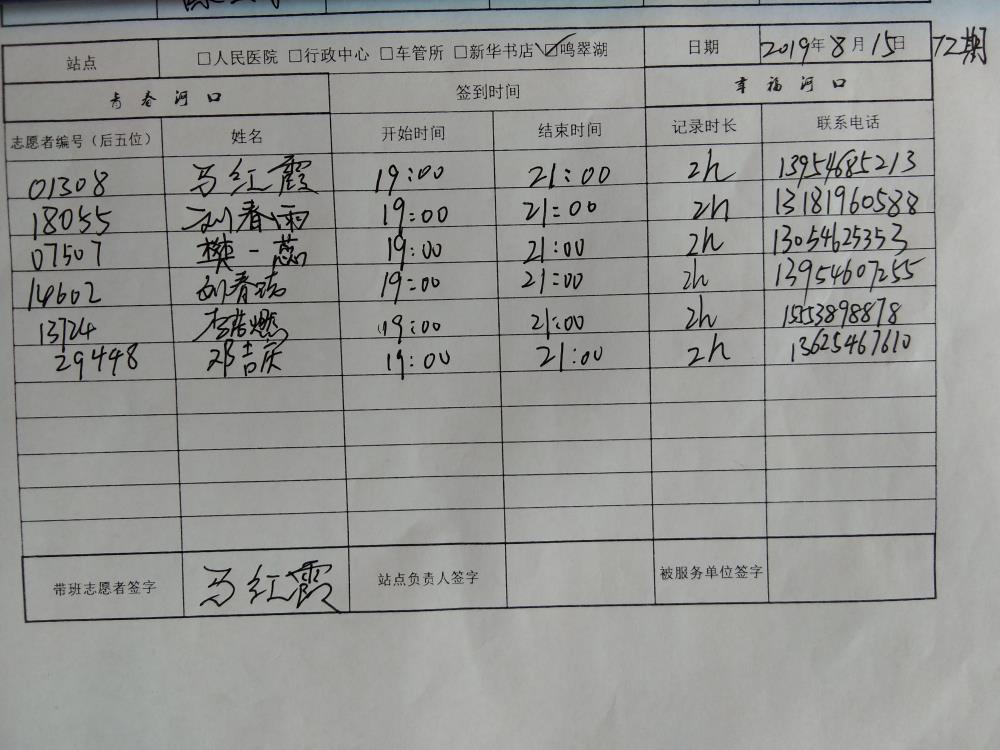 站点 □人民医院 □行政中心 □车管所 □新华书店 ☑鸣翠湖 日期 2019年8月15日 72期
青春河口 签到时间 幸福河口
志愿者编号（后五位） 姓名 开始时间 结束时间 记录时长 联系电话
01308 马红霞 19:00 21:00 2h 13954685213
18055 刘春雨 19:00 21:00 2h 13181960588
07507 樊一蕊 19:00 21:00 2h 13054625353
14602 19:00 21:00 2h 13954607255
13724 19:00 21:00 2h 15553898878
29448 邓吉庆 19:00 21:00 2h 13625467610
带班志愿者签字 马红霞 站点负责人签字 被服务单位签字